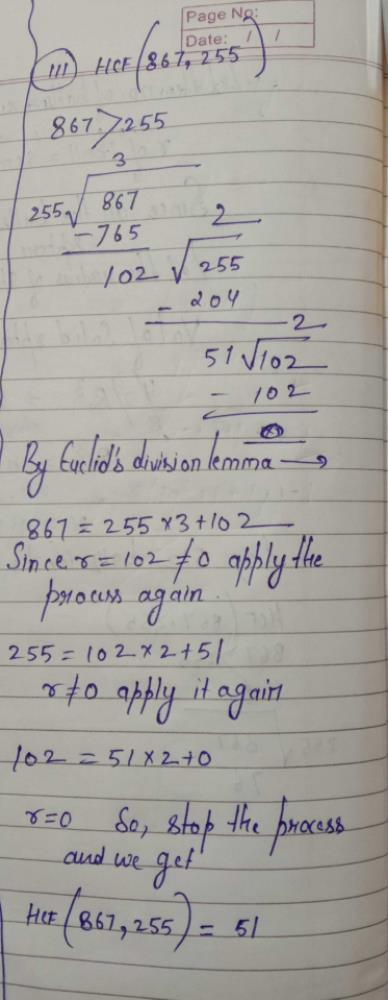 Page No:
Date: / /
(III) HCF (867, 255)
867 > 255
3
255√867
-765
2
102√255
- 204
2
51√102
- 102
0
By Euclid's division lemma →
867 = 255 × 3 + 102
Since r = 102 ≠ 0 apply the
process again.
255 = 102 × 2 + 51
r ≠ 0 apply it again
102 = 51 × 2 + 0
r = 0 So, stop the process
and we get
HCF (867, 255) = 51